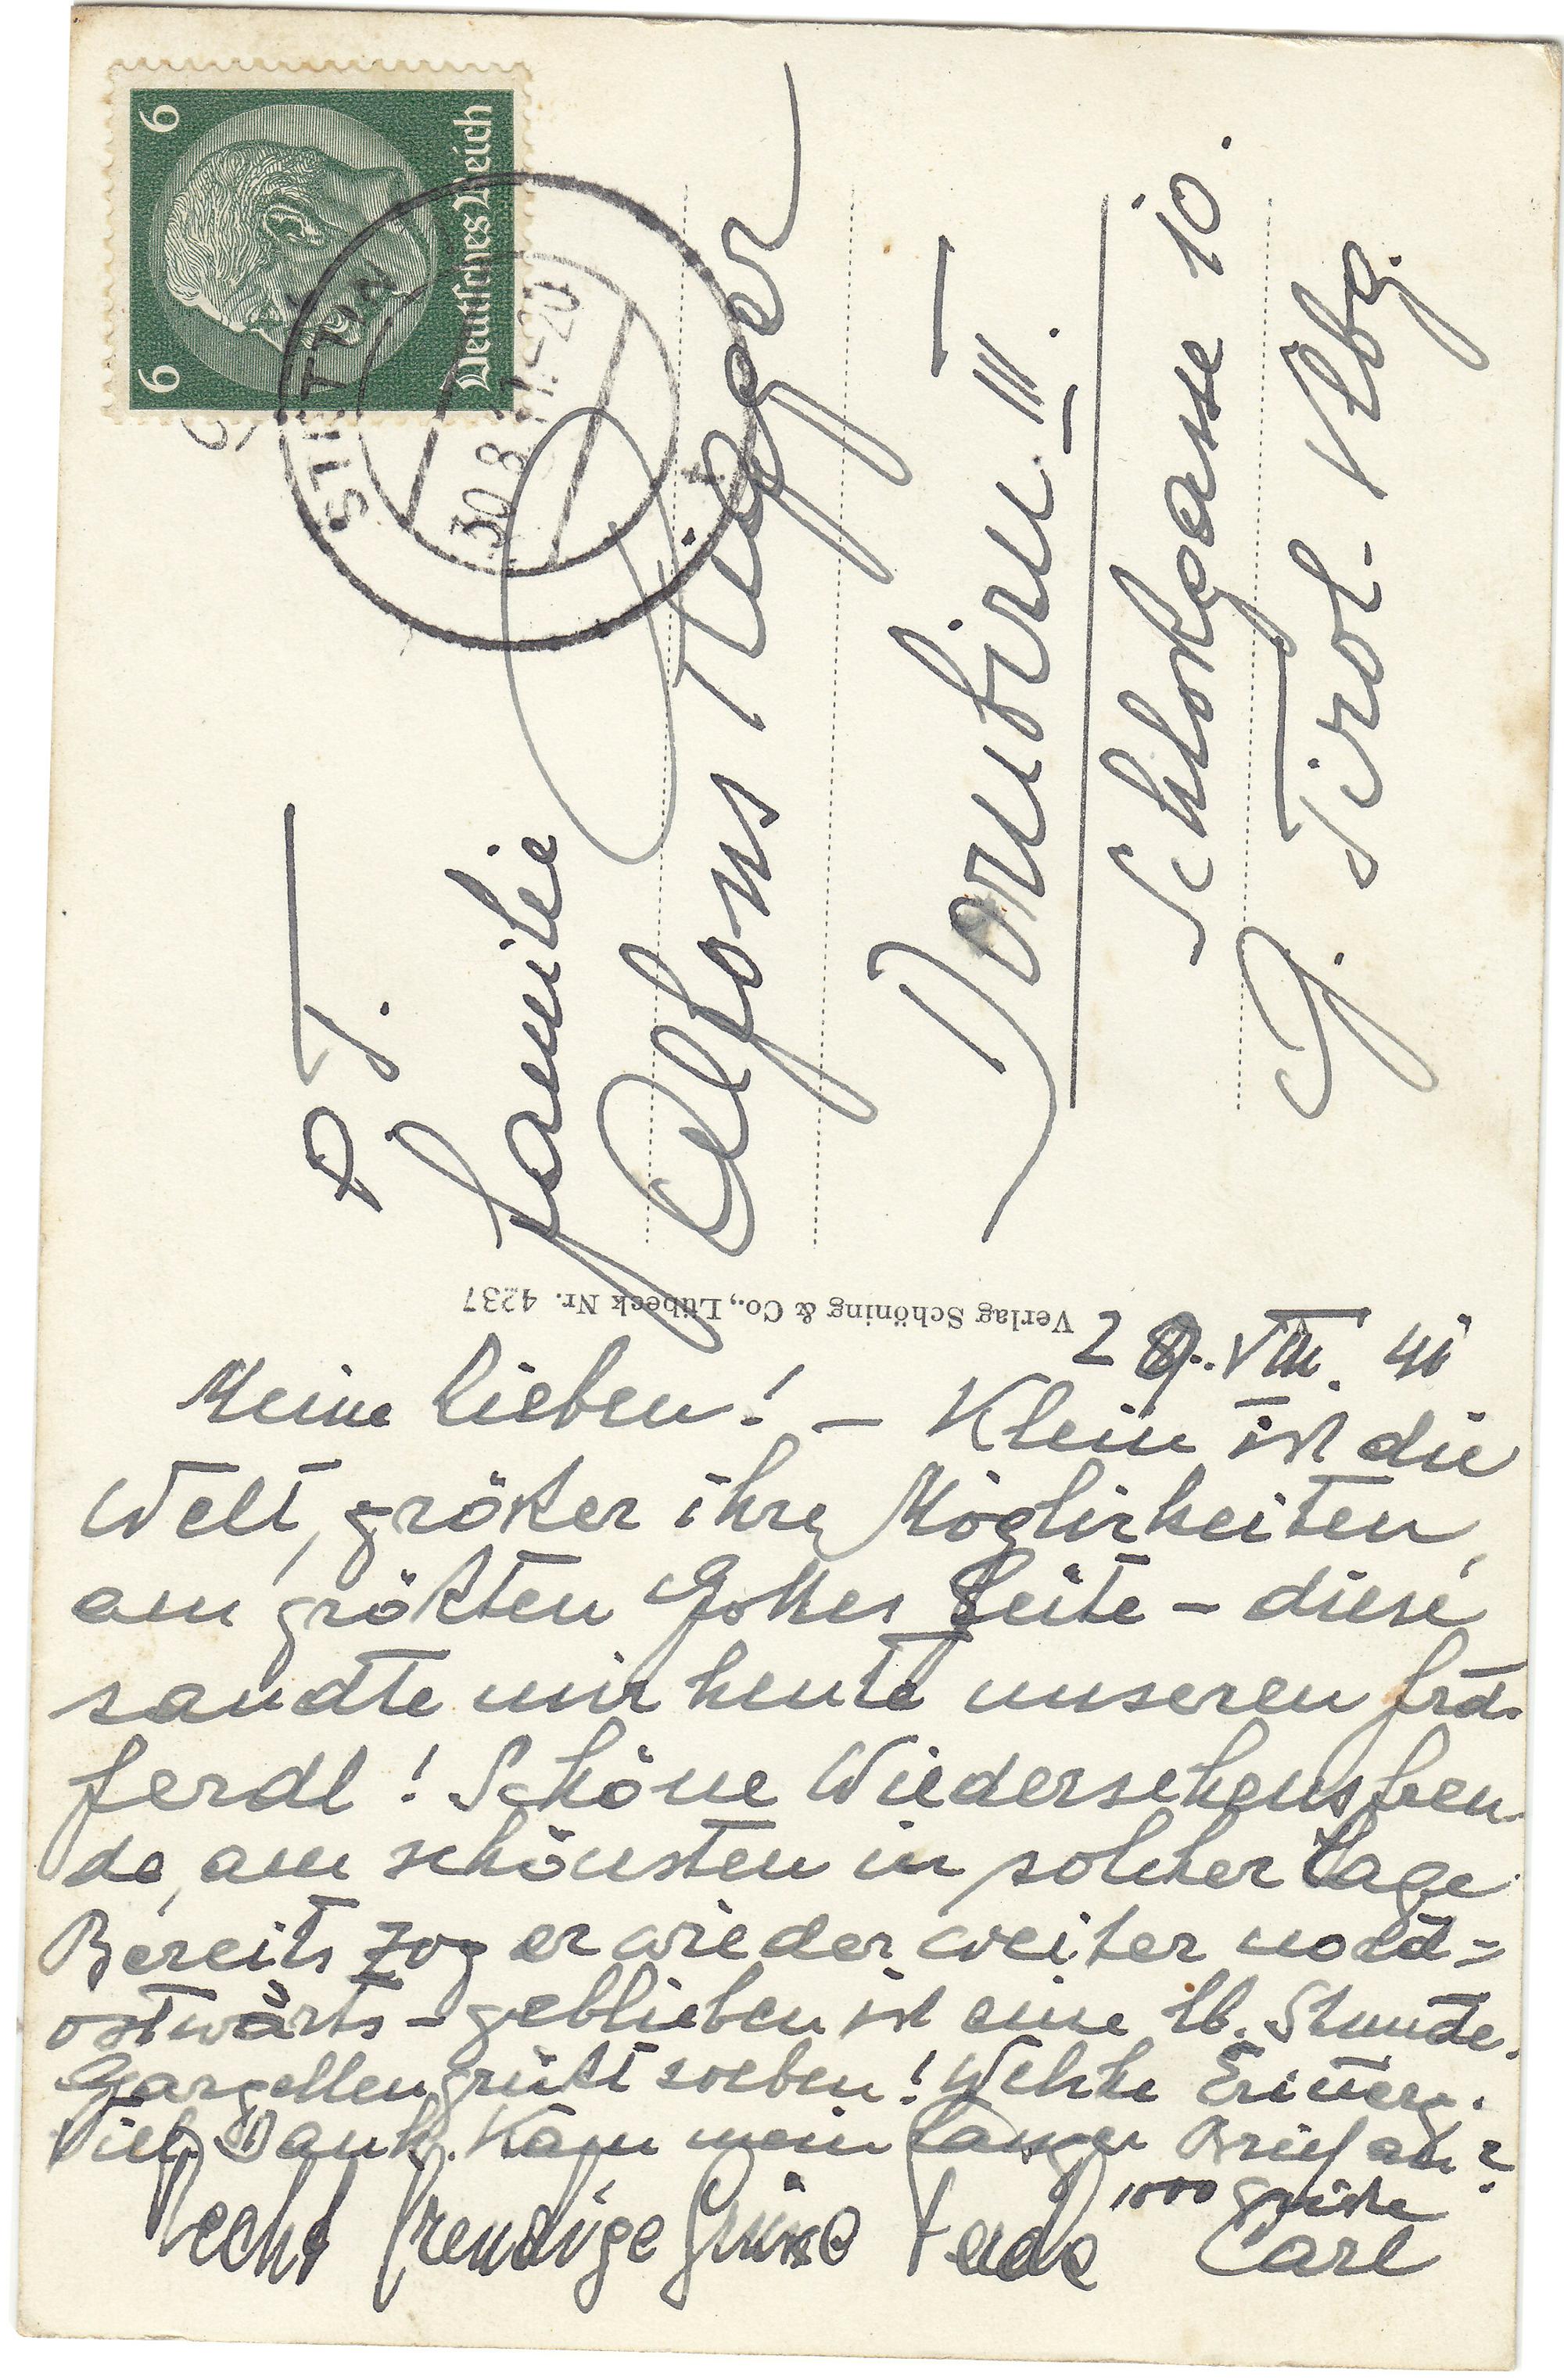 6 6
Deutsches Reich
STETTIN
30.8.41.-20
P. T.
Familie
Alfons Rieger
Dornbirn III.
Schloßgasse 10.
G. Tirol-Vlbg.
Verlag Schöning & Co., Lübeck Nr. 4237
29. VIII. 41
Meine Lieben! – Klein ist die
Welt, größer ihre Möglichkeiten,
am größten Gottes Seite – diese
sandte mir heute unseren
Ferdl! Schöne Wiedersehensfreu-
de, am schönsten in solcher Lage.
Bereits zog er wieder weiter nord=
ostwärts – geblieben ist eine lb. Stunde.
Gargellen grüßt soeben! Welche Erinnerg.
Viel. Dank. Kam mein langer Brief an?
1000 Grüße
Recht freudige Grüsse Ferde Carl